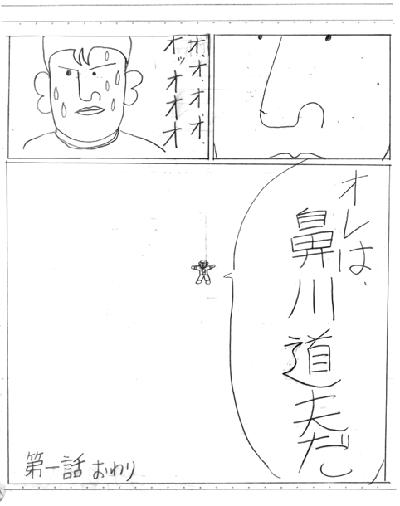 オ、オオオ
オッオオオ
オレは、
鼻川
道夫だ
第一話 おわり